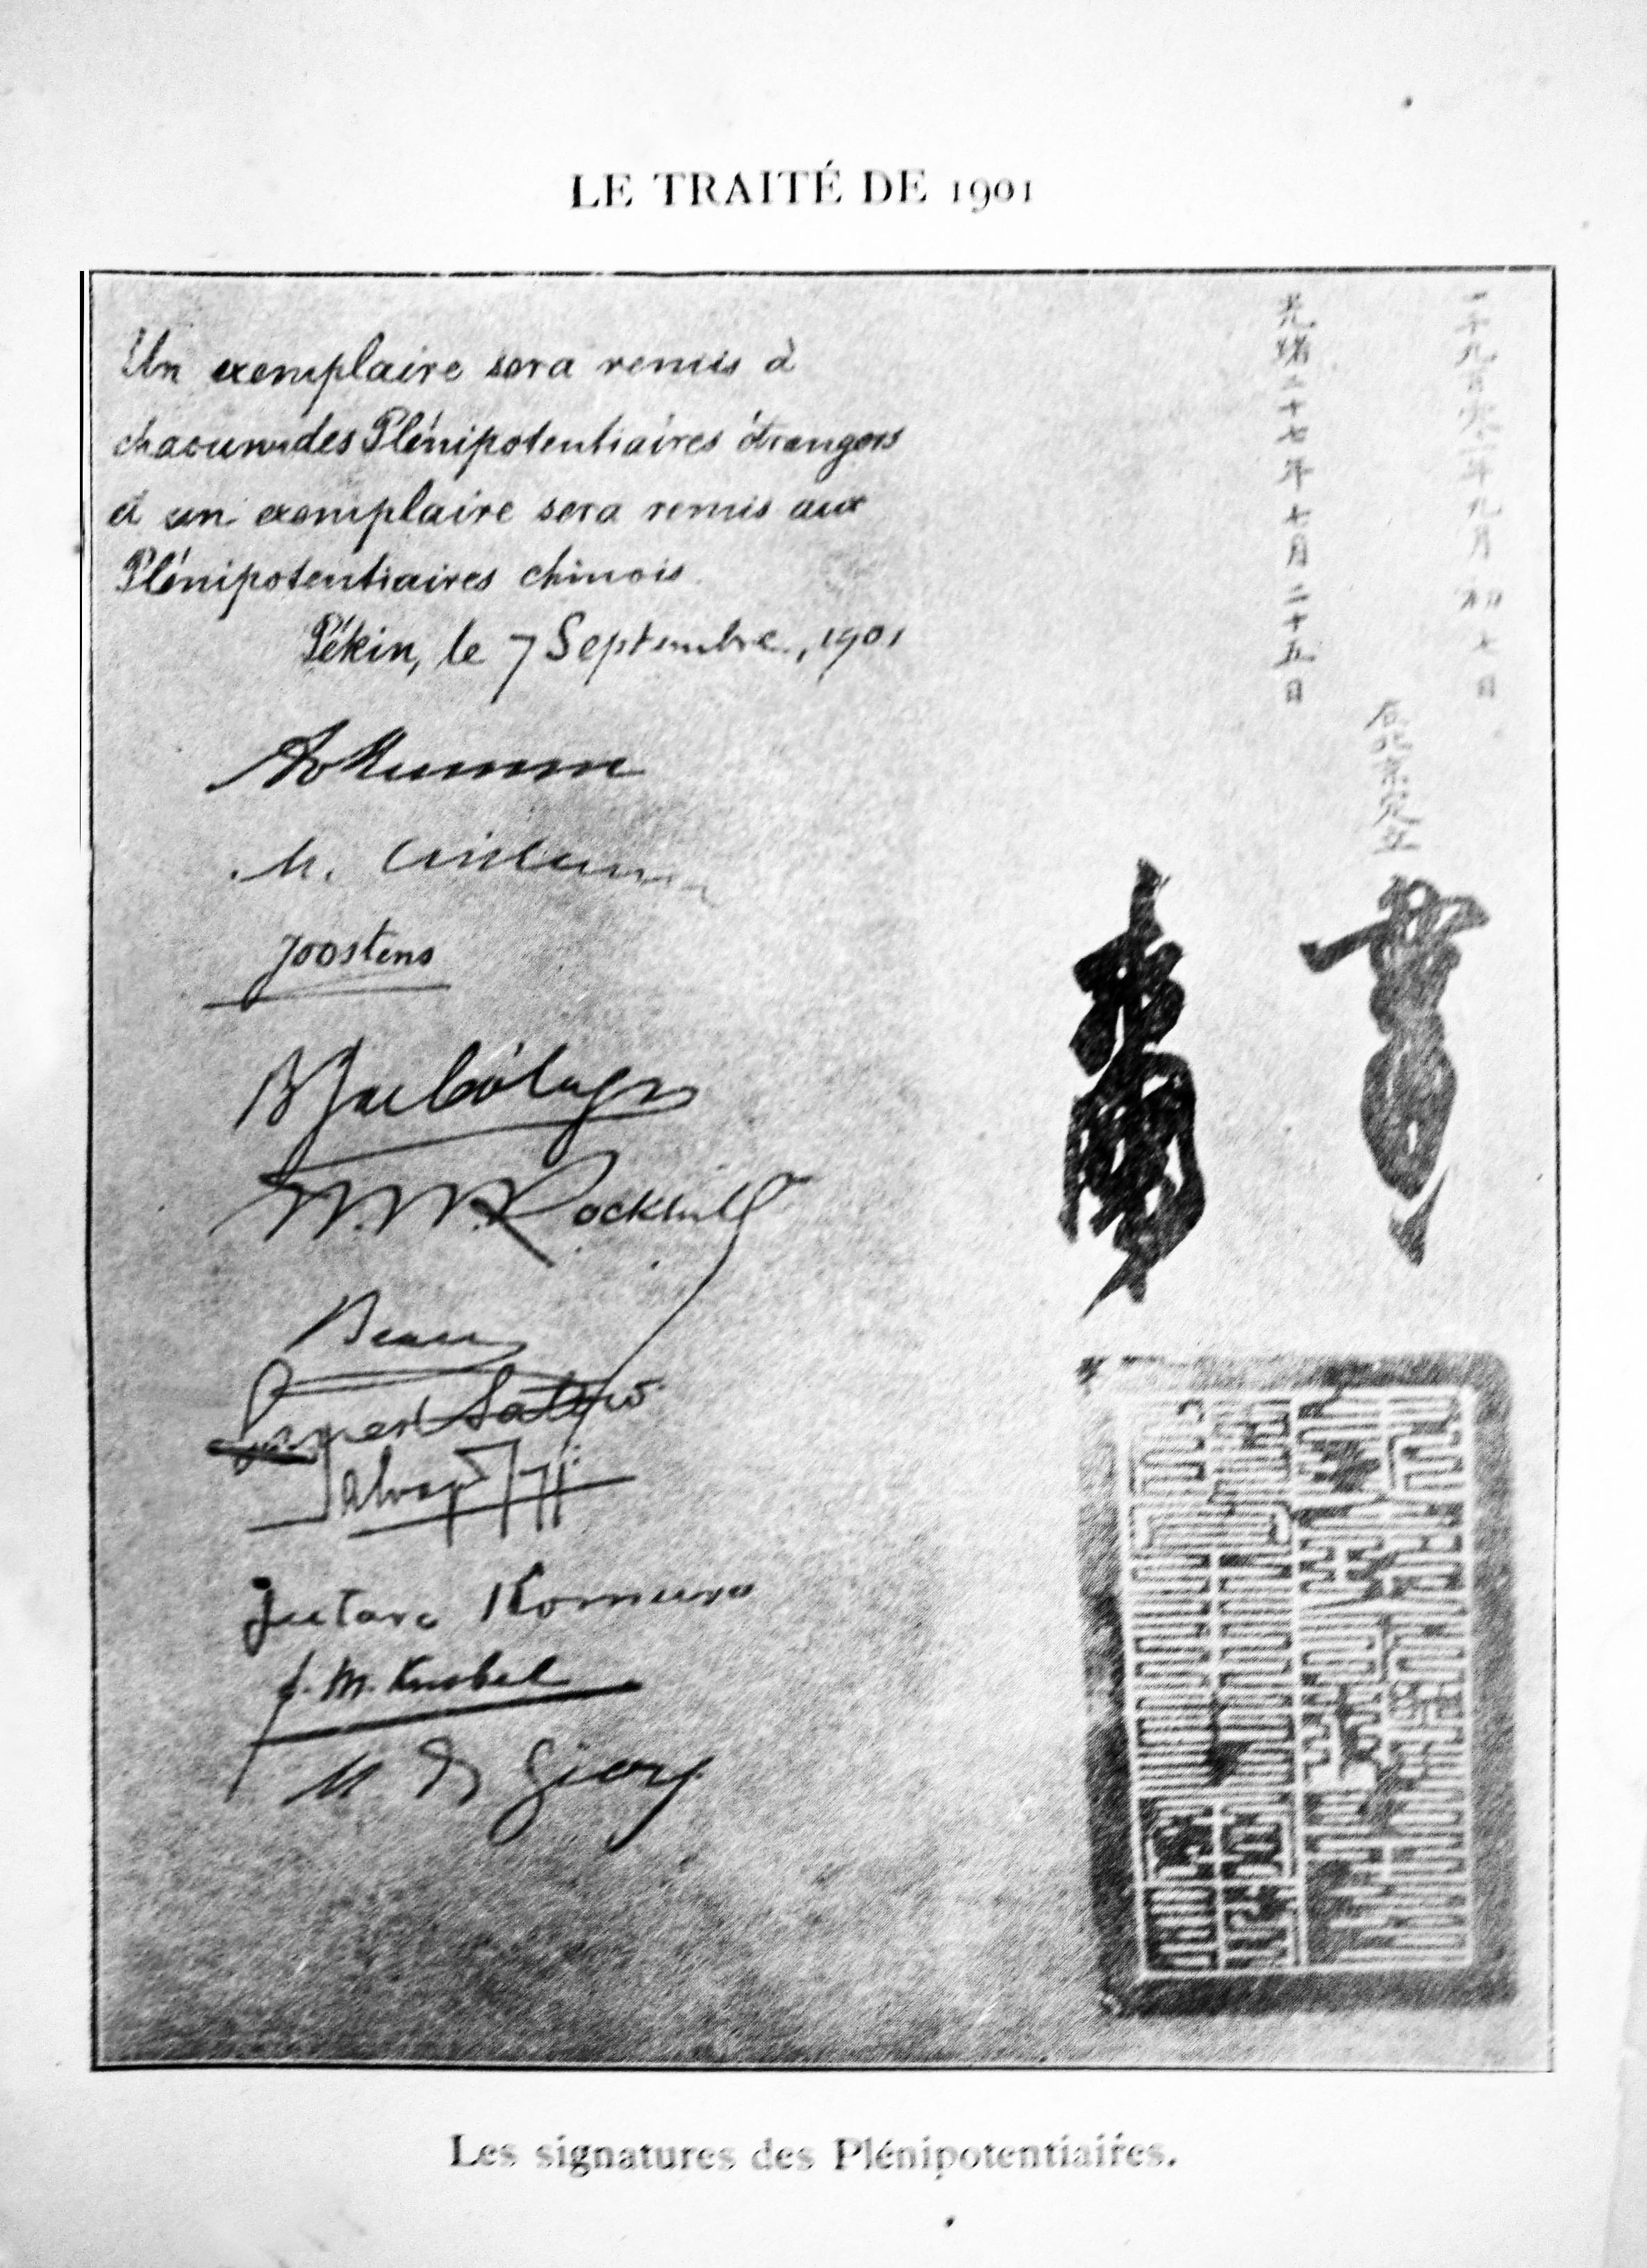 LE TRAITÉ DE 1901
Un exemplaire sera remis à
chacun des Plénipotentiaires étrangers
et un exemplaire sera remis aux
Plénipotentiaires chinois.
Pékin, le 7 Septembre, 1901
光緒二十七年七月二十五日
一千九百零一年九月初七日
在北京定立
A. v. Mumm
M. Czikann
Joostens
B. J. de Cólogan
W. W. Rockhill
Beau
Ernest Satow
Salvago Raggi
Jutaro Komura
F. M. Knobel
M. de Giers
Les signatures des Plénipotentiaires.